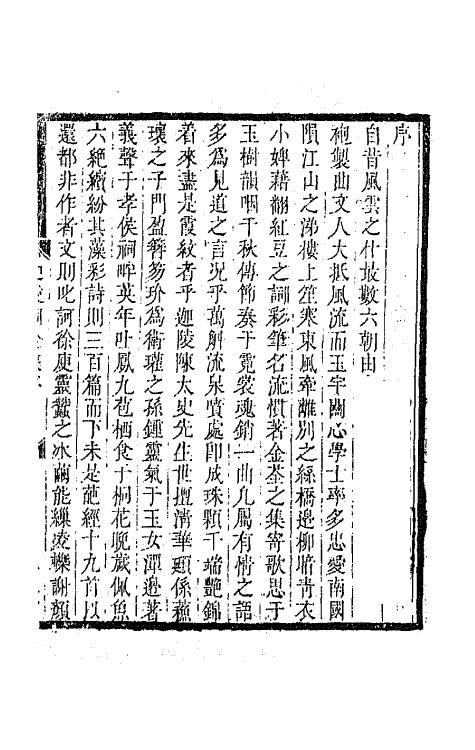 序
自昔風雲之什最數六朝由
裥製曲文人大抵風流而玉宇關心學士率多忠愛南國
隕江山之涕樓上笙寒東風牽離別之絲橋邊柳暗青衣
小婢藉翻紅豆之詞彩筆名流慣著金荃之集寄歌思于
玉樹韻咽千秋傳節奏于霓裳魂銷一曲凡屬有情之語
多爲見道之言况乎萬斛流泉噴處即成珠顆千端艷錦
着來盡是霞紋者乎迦陵陳太史先生世擅清華頚係蘓
瓌之子門盈簪笏玠爲衛瓘之孫鍾靈氣于玉女潭邊著
義聲于孝侯祠畔英年吐鳳九苞栖食于桐花晩歲佩魚
六絶繽紛其藻彩詩則三百篇而下未是葩經十九首以
還都非作者文則叱訶徐庾靈蠶之冰繭能繅凌轢謝顏